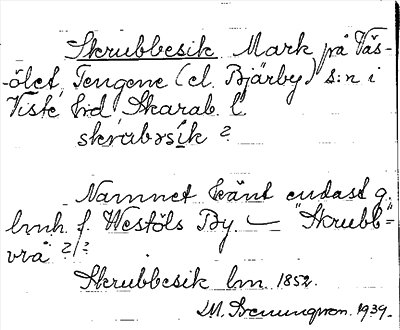 Skrubbesik Mark på Väs-
-ölet, Tengene (el. Bjärby) s:n i
Viste hd, Skarab. l.
skrubəsik ?
Namnet känt endast g.
lmh. f. Westöls By. — "Skrubb=
vrå" ?/?
Skrubbesik lm. 1852.
1939.